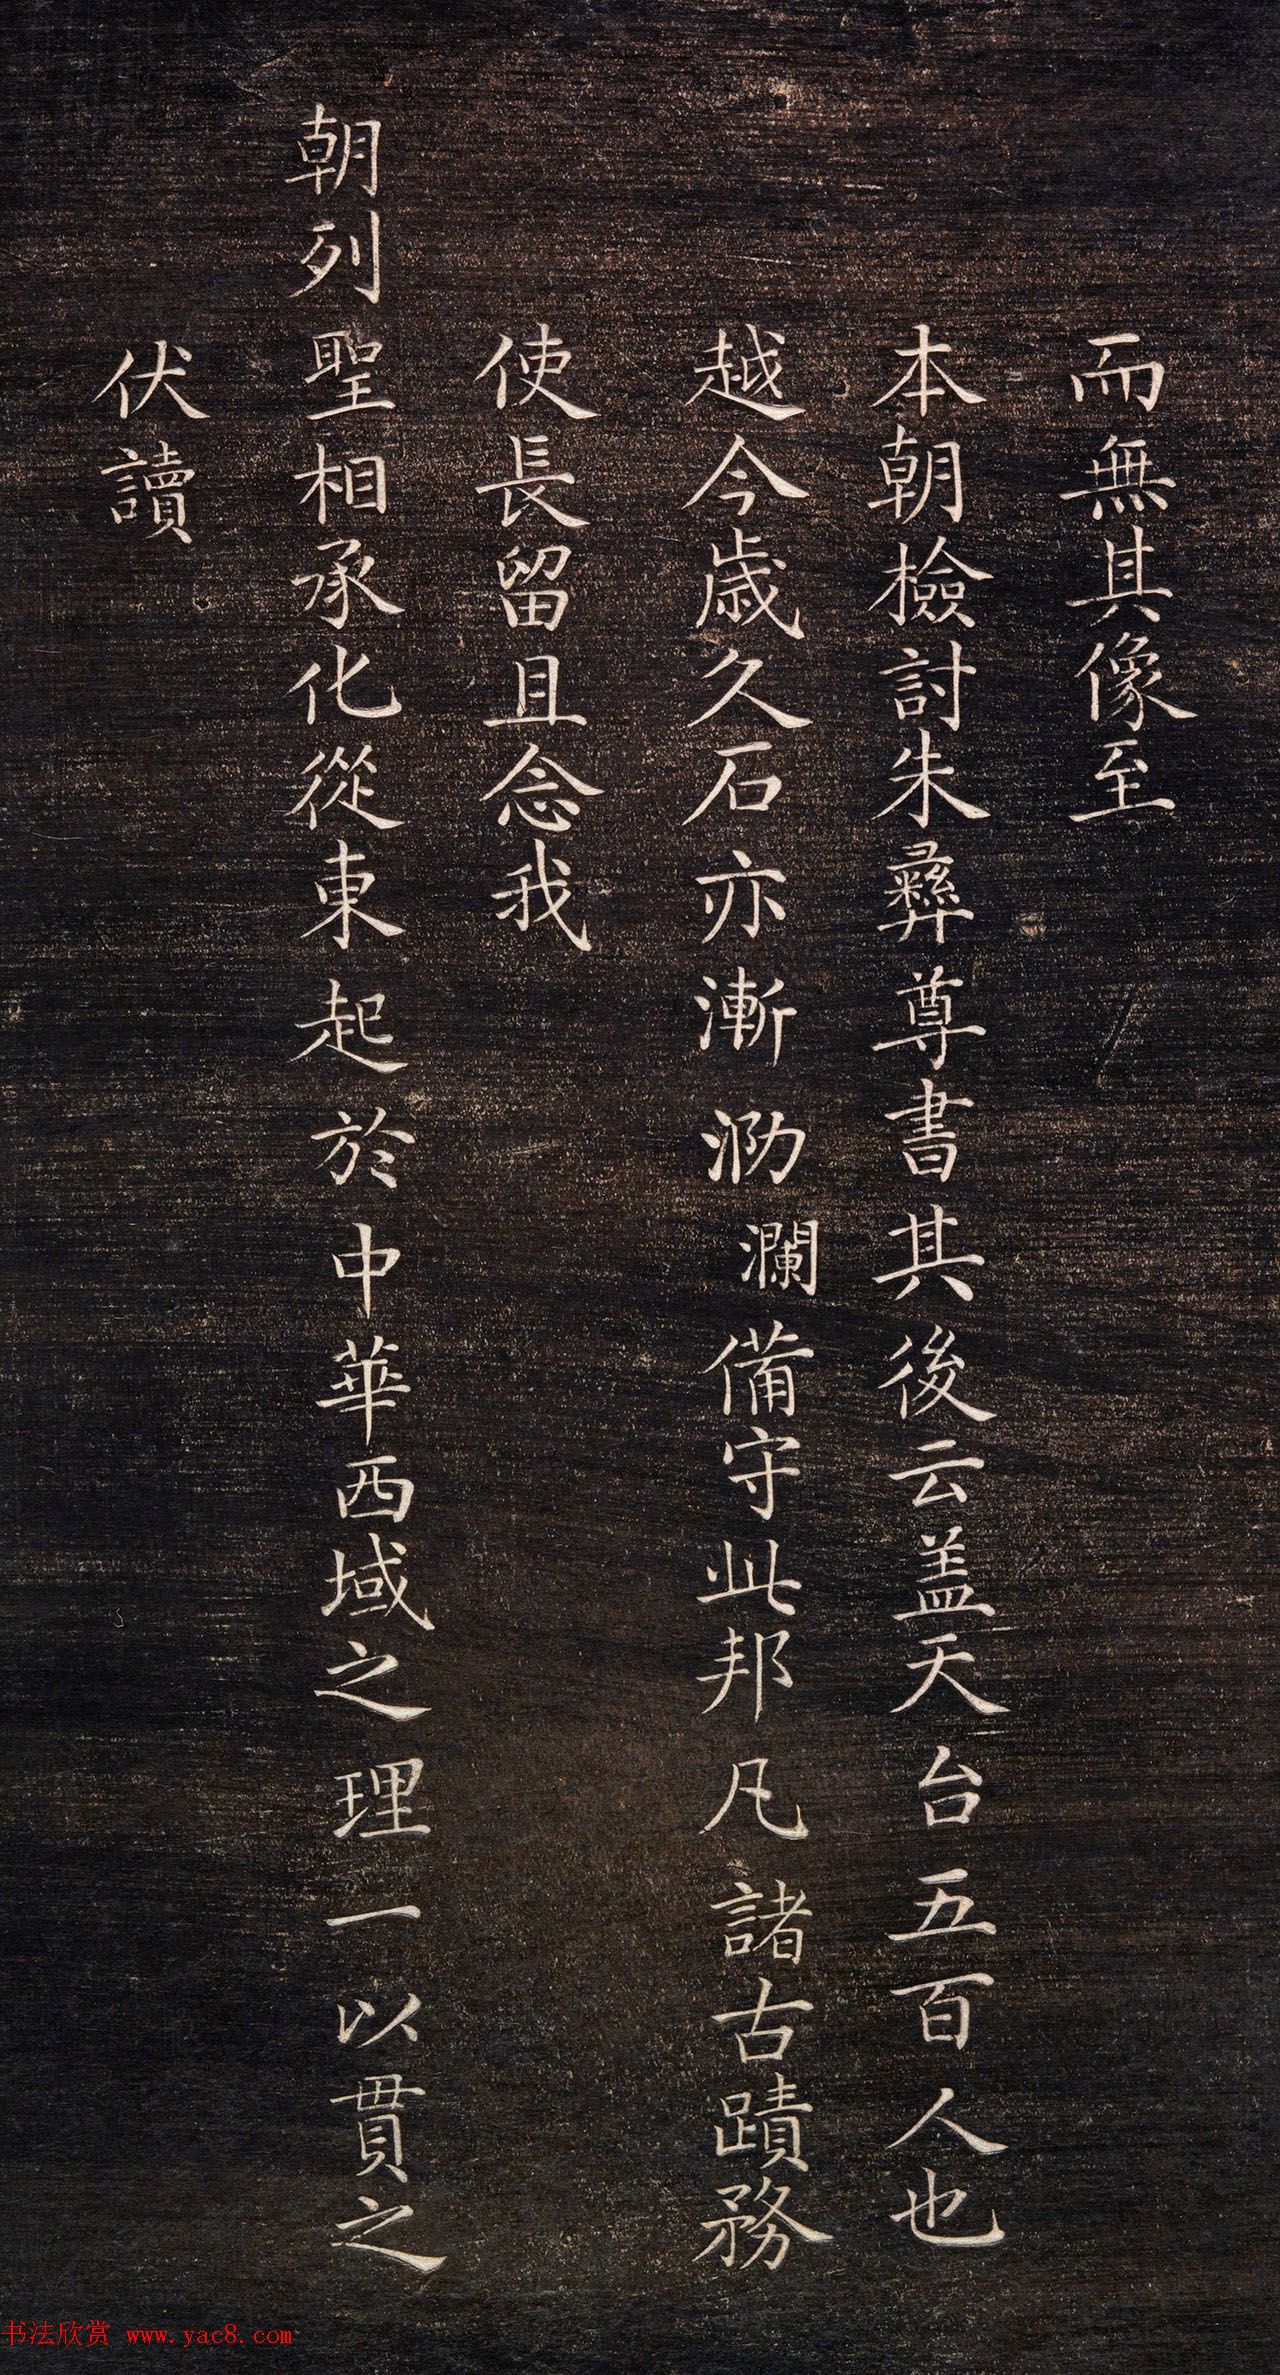 而無其像至
本朝檢討朱彝尊書其後云盖天台五百人也
越今歲久石亦漸泐瀾備守此邦凡諸古蹟務
使長留且念我
朝列聖相承化從東起於中華西域之理一以貫之
伏讀
书法欣赏 www.yac8.com